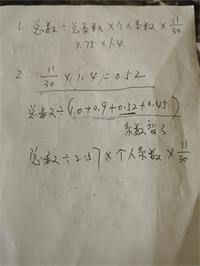 1. 总数÷总系数×个人系数×11/30
3.75×1.4
2. 11/30×1.4=0.52
总数÷(1.0+0.9+0.52+0.45)
系数变了
总数÷2.57×个人系数×11/30